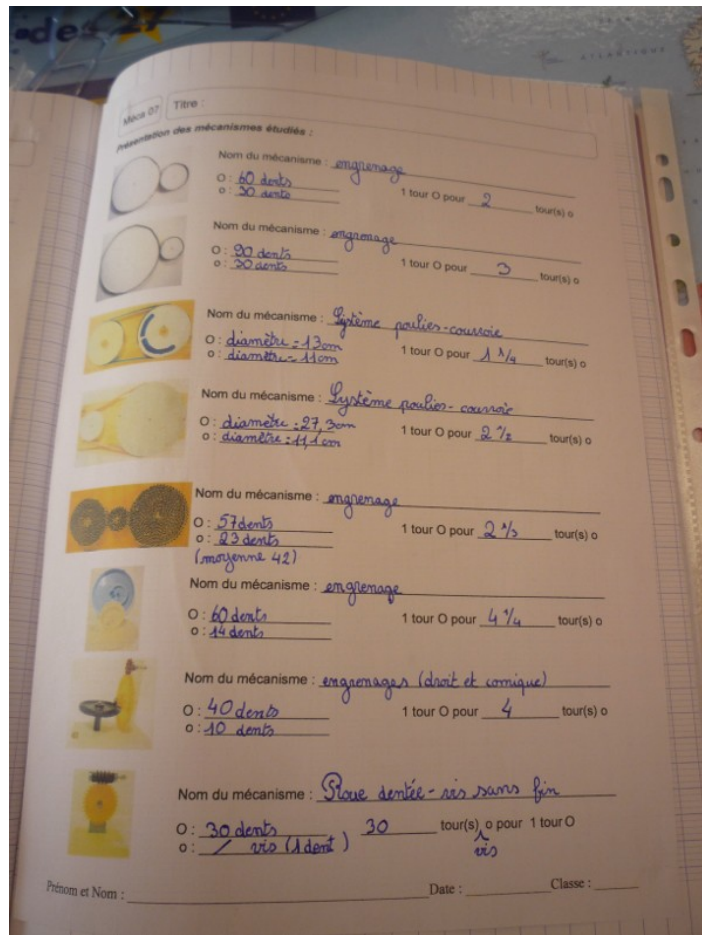 ATLANTIQUE
Méca 07
Titre :
Présentation des mécanismes étudiés :
Nom du mécanisme : engrenage
O : 60 dents
o : 30 dents
1 tour O pour 2 tour(s) o
Nom du mécanisme : engrenage
O : 90 dents
o : 30 dents
1 tour O pour 3 tour(s) o
Nom du mécanisme : Système poulies-courroie
O : diamètre = 13cm
o : diamètre = 11cm
1 tour O pour 1 1/4 tour(s) o
Nom du mécanisme : Système poulies-courroie
O : diamètre : 27,3cm
o : diamètre : 11,1cm
1 tour O pour 2 1/2 tour(s) o
Nom du mécanisme : engrenage
O : 57 dents
o : 23 dents
(moyenne 42)
1 tour O pour 2 1/3 tour(s) o
Nom du mécanisme : engrenage
O : 60 dents
o : 14 dents
1 tour O pour 4 1/4 tour(s) o
Nom du mécanisme : engrenages (droit et comique)
O : 40 dents
o : 10 dents
1 tour O pour 4 tour(s) o
Nom du mécanisme : Roue dentée - vis sans fin
O : 30 dents
o : / vis (1 dent)
30 tour(s) o pour 1 tour O
vis
Prénom et Nom : Date : Classe :